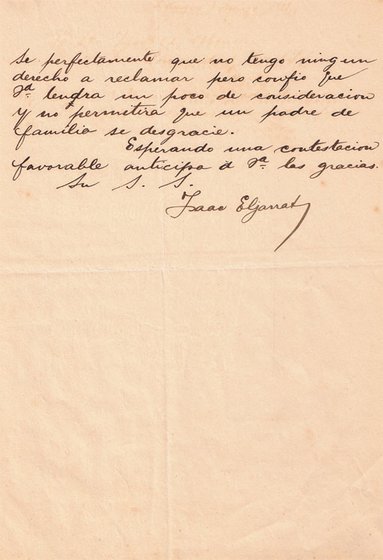 Se perfectamente que no tengo ningun
derecho a reclamar pero confio que
Vd tendra un poco de consideracion
y no permitira que un padre de
familia se desgracie.
Esperando una contestacion
favorable anticipa á Vd. las gracias.
Su S. S.
Isaac Elgarrat